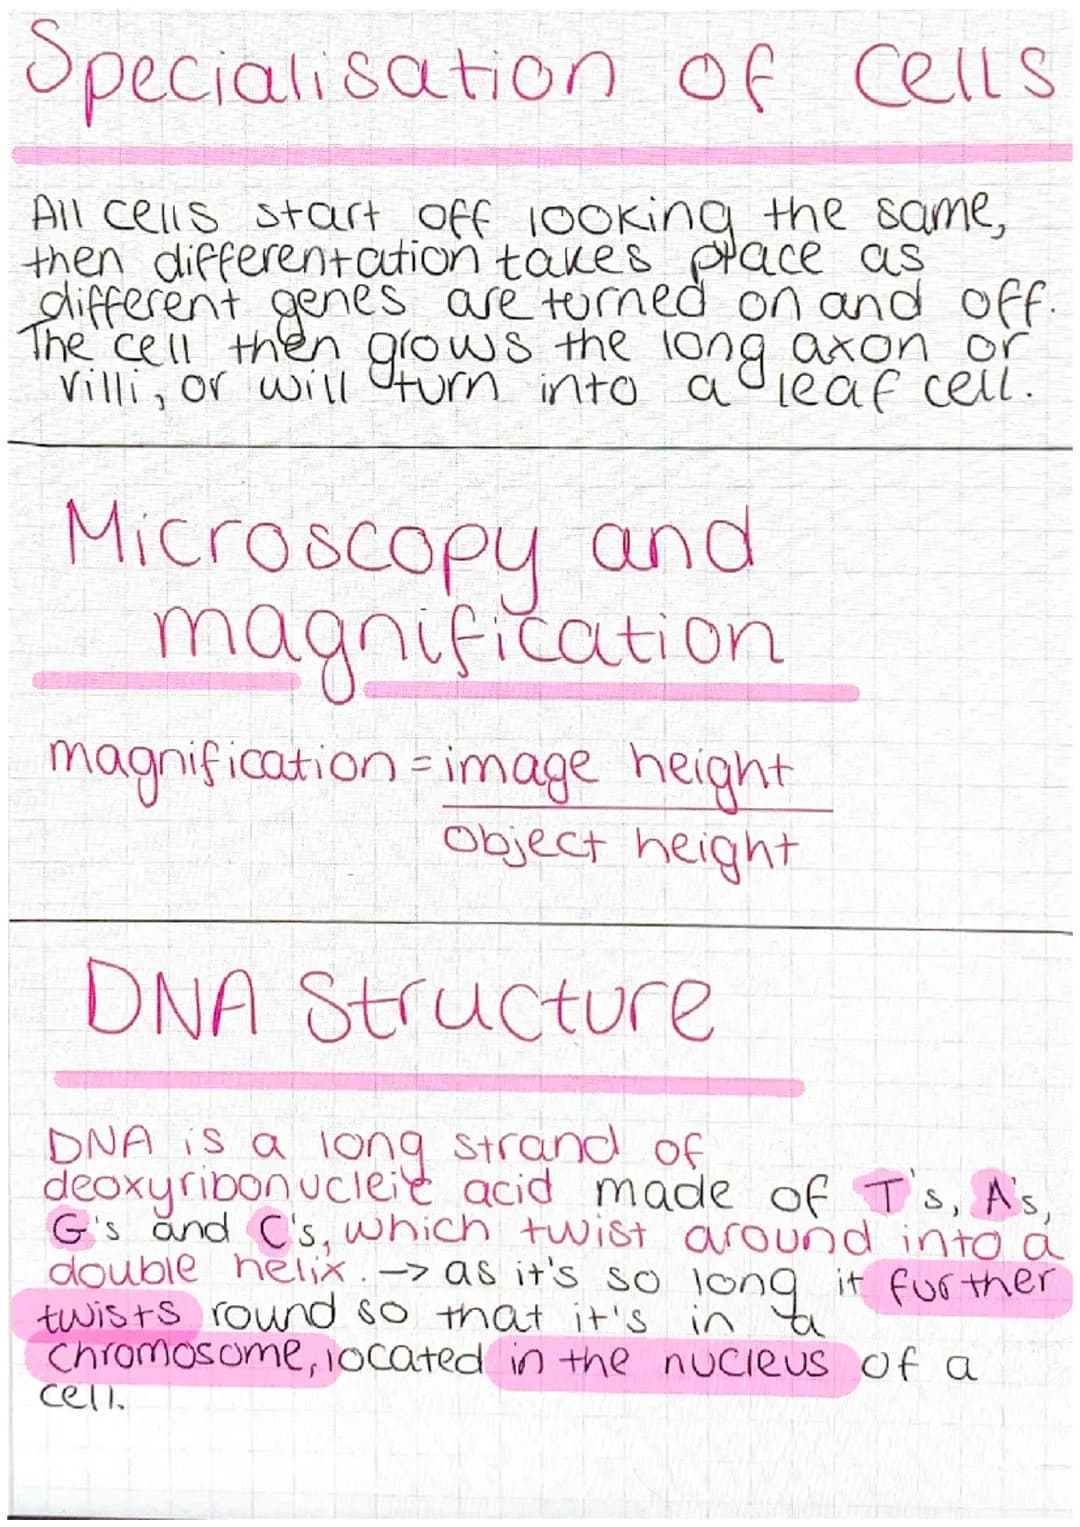 Specialisation of cells
All cells start off looking the same,
then differentation takes place as
different genes are turned on and off.
The cell then grows the long axon or
villi, or will turn into a leaf cell.
Microscopy and
magnification
magnification = image height
object height
DNA Structure
DNA is a long strand of
deoxyribonucleic acid made of T's, A's,
G's and C's, which twist around into a
double helix. → as it's so long it further
twists round so that it's in a
chromosome, located in the nucleus of a
cell.